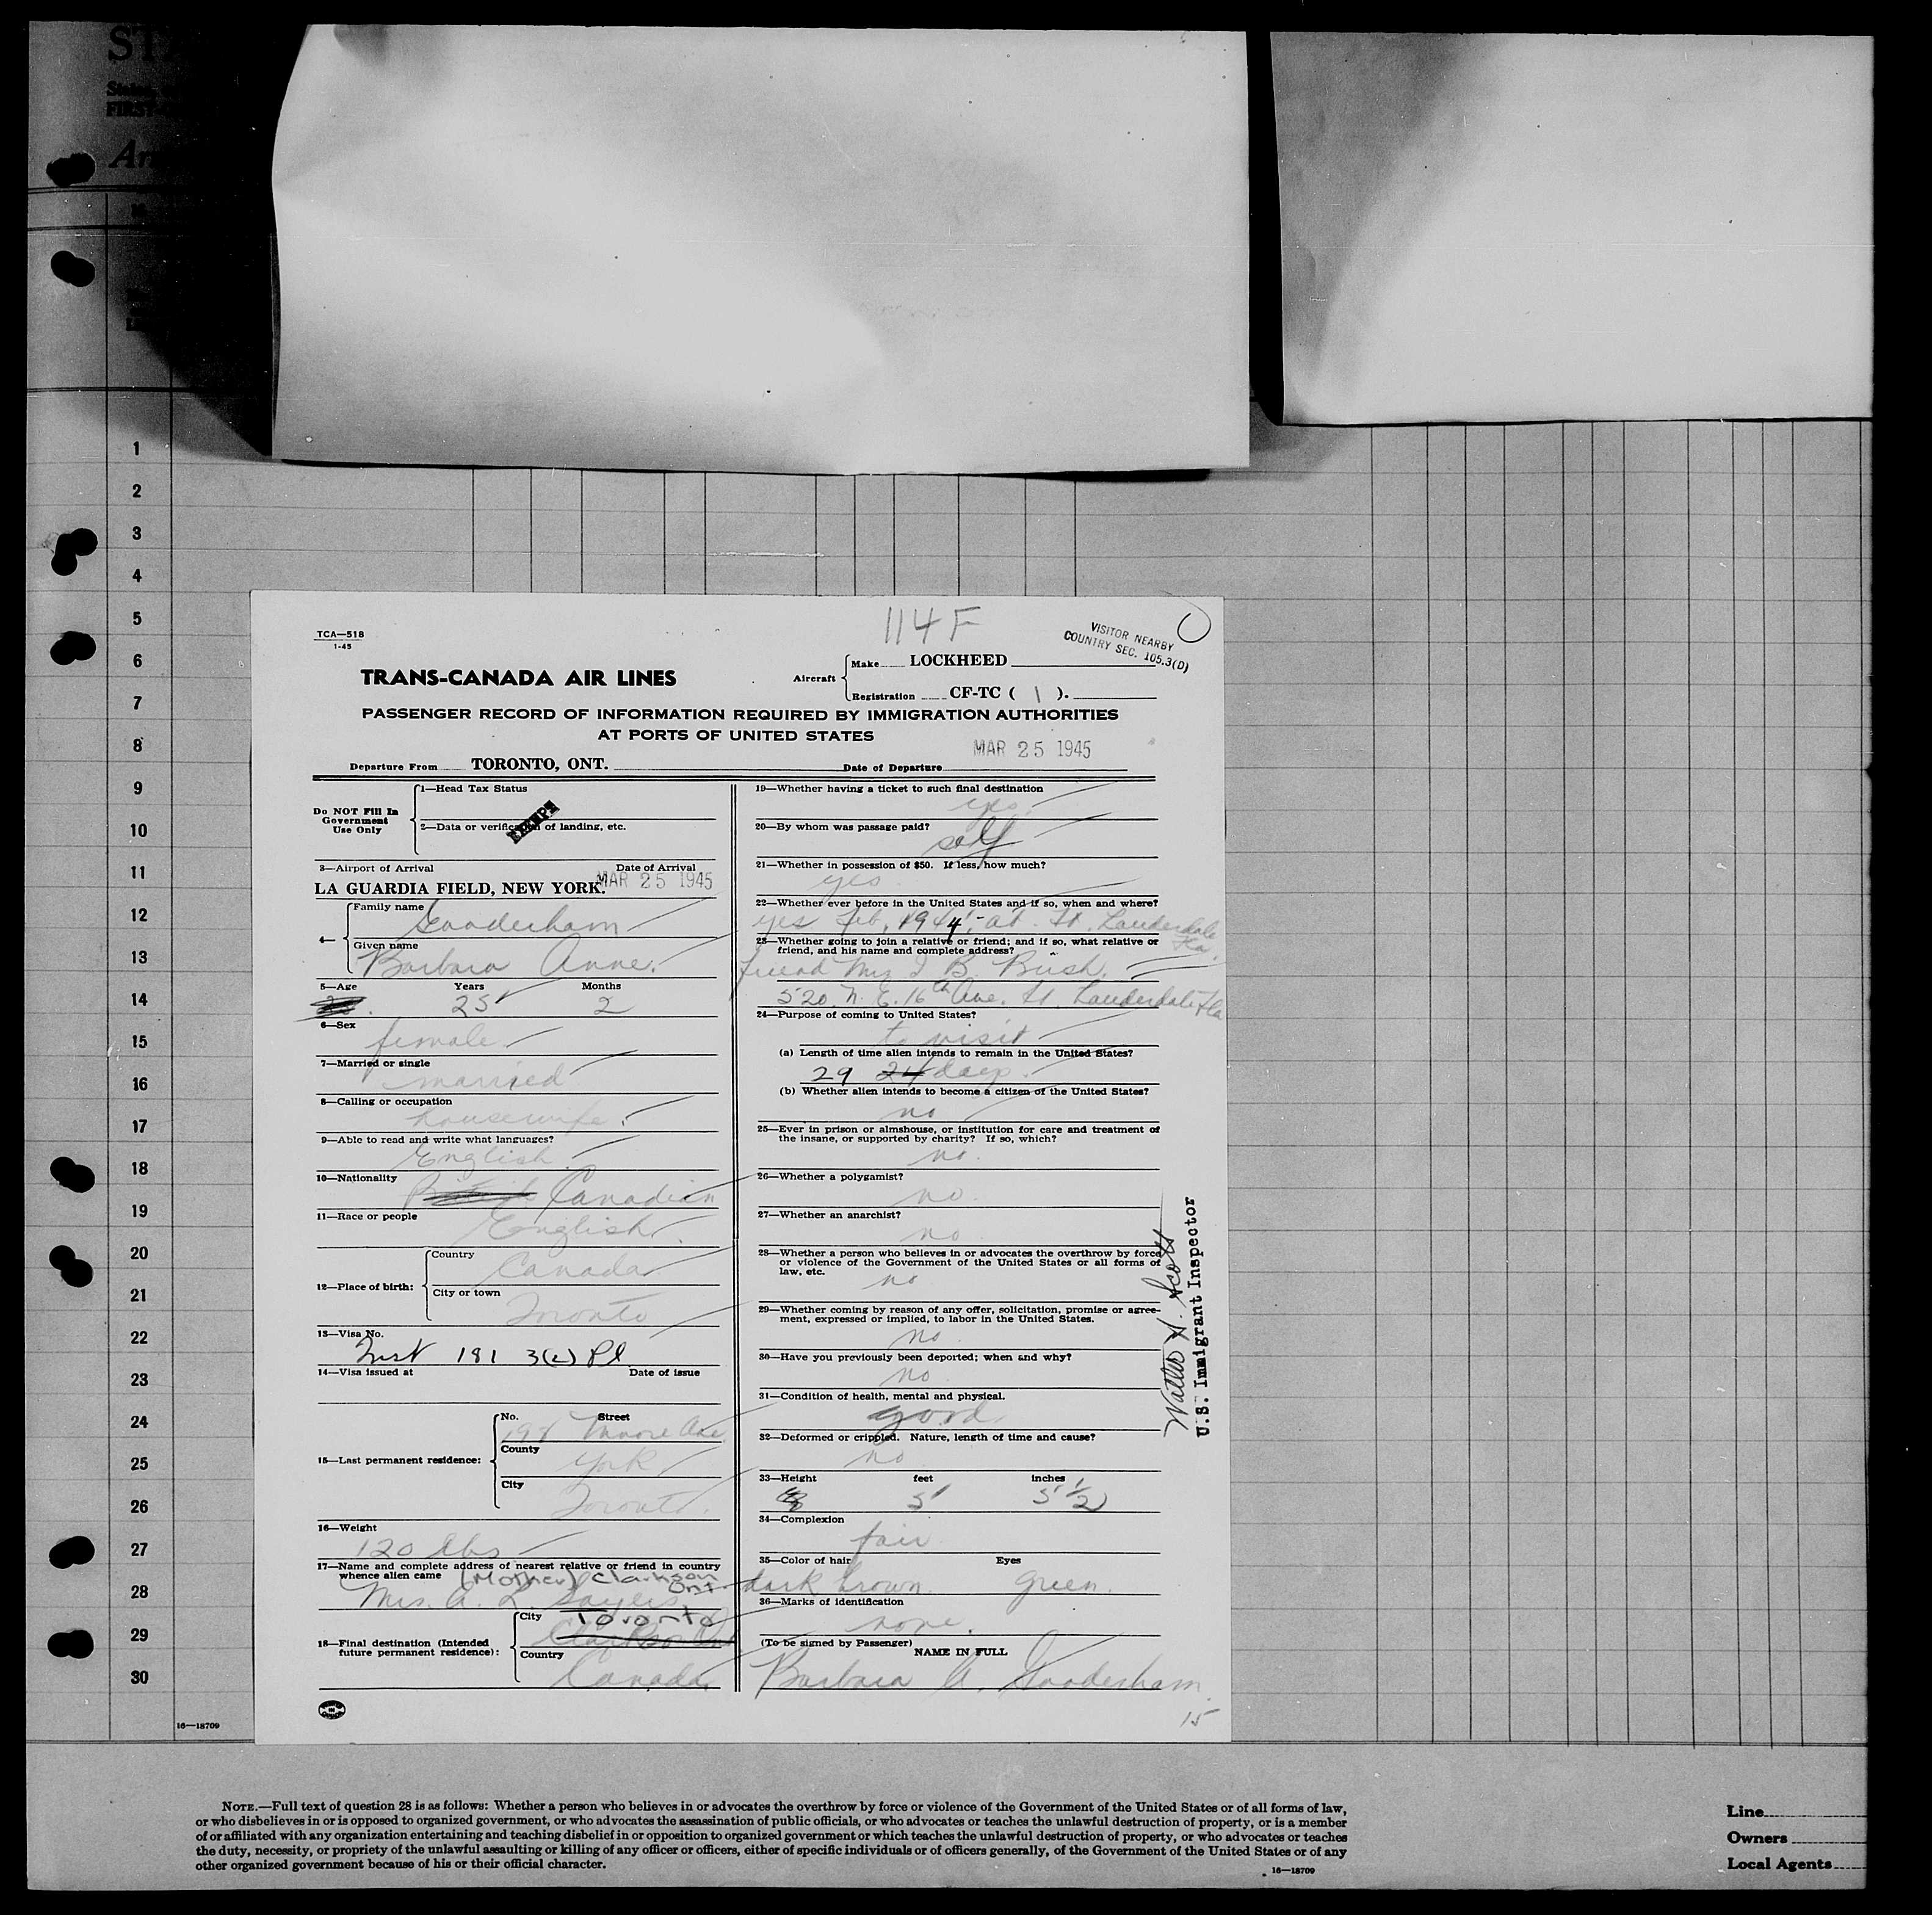 114 F
VISITOR NEARBY
COUNTRY SEC. 105.3(D)
TCA—518
1-45
TRANS-CANADA AIR LINES
Aircraft
Make LOCKHEED
Registration CF-TC ( 1 ).
PASSENGER RECORD OF INFORMATION REQUIRED BY IMMIGRATION AUTHORITIES
AT PORTS OF UNITED STATES
MAR 25 1945
Departure From TORONTO, ONT. Date of Departure
Do NOT Fill In
Government
Use Only
1—Head Tax Status
EXEMPT
2—Data or verification of landing, etc.
3—Airport of Arrival Date of Arrival
LA GUARDIA FIELD, NEW YORK. MAR 25 1945
4—
Family name
Gooderham
Given name
Barbara Anne.
5—Age Years Months
25 2
6—Sex
female
7—Married or single
married
8—Calling or occupation
housewife.
9—Able to read and write what languages?
English.
10—Nationality
British Canadian
11—Race or people
English.
12—Place of birth:
Country
Canada
City or town
Toronto
13—Visa No.
181 3(2) Pl
14—Visa issued at Date of issue
15—Last permanent residence:
No. Street
198 Moore Ave
County
York
City
Toronto.
16—Weight
120 lbs
17—Name and complete address of nearest relative or friend in country
whence alien came (Mother) Clarkson
Ont
Mrs. A. L. Sayers
18—Final destination (Intended
future permanent residence):
City Toronto
Clarkson Ont
Country
Canada.
19—Whether having a ticket to such final destination
yes
20—By whom was passage paid?
self
21—Whether in possession of $50. If less, how much?
yes.
22—Whether ever before in the United States and if so, when and where?
yes Feb, 1944,- at Ft. Lauderdale
Fla.
23—Whether going to join a relative or friend; and if so, what relative or
friend, and his name and complete address?
friend Mrs J B. Bush.
520 N. E. 16th Ave. Ft. Lauderdale Fla
24—Purpose of coming to United States?
to visit
(a) Length of time alien intends to remain in the United States?
29 24 days.
(b) Whether alien intends to become a citizen of the United States?
no
25—Ever in prison or almshouse, or institution for care and treatment of
the insane, or supported by charity? If so, which?
no.
26—Whether a polygamist?
no.
27—Whether an anarchist?
no
28—Whether a person who believes in or advocates the overthrow by force
or violence of the Government of the United States or all forms of
law, etc.
no
29—Whether coming by reason of any offer, solicitation, promise or agree-
ment, expressed or implied, to labor in the United States.
no.
30—Have you previously been deported; when and why?
no
31—Condition of health, mental and physical.
good
32—Deformed or crippled. Nature, length of time and cause?
no
33—Height feet inches
5' 5 1/2
34—Complexion
fair
35—Color of hair Eyes
dark brown. green.
36—Marks of identification
none.
(To be signed by Passenger)
NAME IN FULL
Barbara A. Gooderham.
15
Walter H. Scott
U.S. Immigrant Inspector
1
2
3
4
5
6
7
8
9
10
11
12
13
14
15
16
17
18
19
20
21
22
23
24
25
26
27
28
29
30
16—18709
NOTE.—Full text of question 28 is as follows: Whether a person who believes in or advocates the overthrow by force or violence of the Government of the United States or of all forms of law,
or who disbelieves in or is opposed to organized government, or who advocates the assassination of public officials, or who advocates or teaches the unlawful destruction of property, or is a member
of or affiliated with any organization entertaining and teaching disbelief in or opposition to organized government or which teaches the unlawful destruction of property, or who advocates or teaches
the duty, necessity, or propriety of the unlawful assaulting or killing of any officer or officers, either of specific individuals or of officers generally, of the Government of the United States or of any
other organized government because of his or their official character.
16—18709
Line
Owners
Local Agents